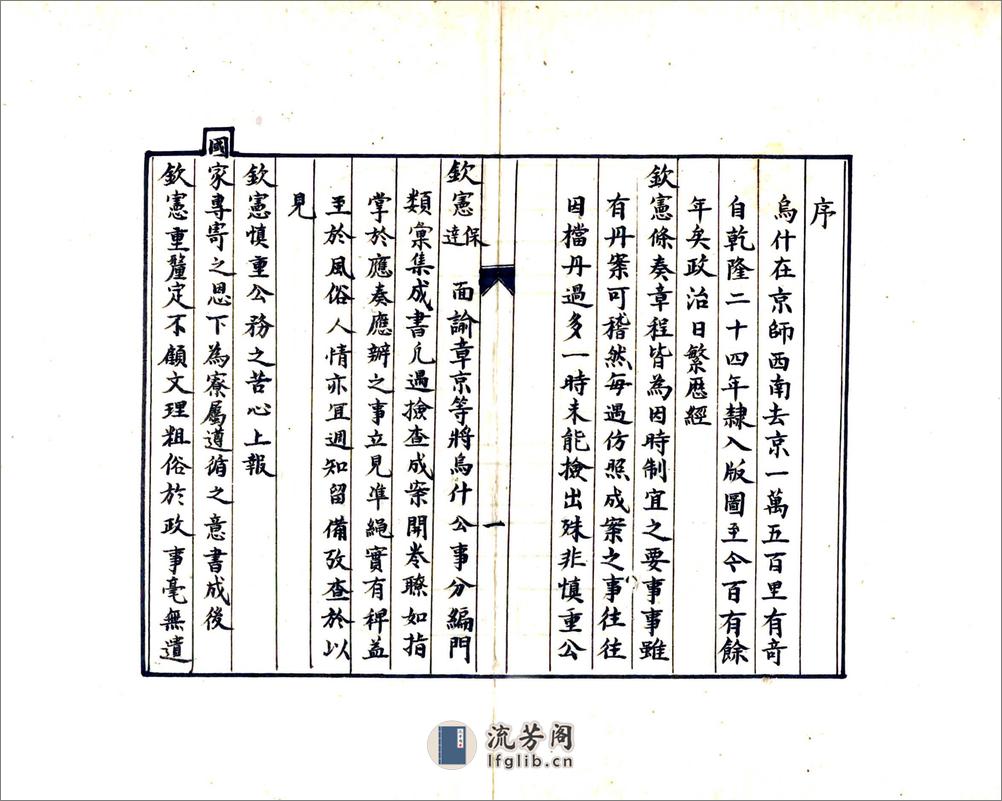 序
烏什在京師西南去京一萬五百里有竒
自乾隆二十四年隸入版圖至今百有餘
年矣政治日繁歷經
欽憲條奏章程皆為因時制宜之要事事雖
有丹案可稽然每遇仿照成案之事往往
因檔丹過多一時未能撿出殊非慎重公
一
欽憲保達面諭章京等將烏什公事分編門
類彙集成書凡遇撿查成案開卷瞭如指
掌於應奏應辦之事立見准繩實有裨益
至於風俗人情亦宜週知留備攷查於以
見
欽憲慎重公務之苦心上報
國家專寄之恩下為寮屬遵循之意書成後
欽憲重釐定不顧文理粗俗於政事毫無遺
流芳阁
lfglib.cn